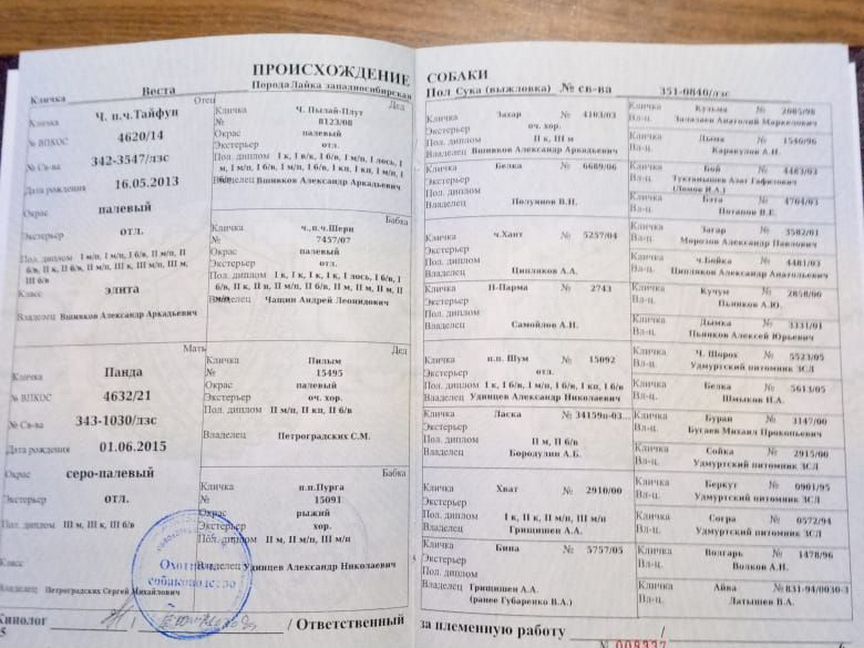 ПРОИСХОЖДЕНИЕ
Кличка Веста Порода Лайка западносибирская
Отец
Кличка Ч. п.ч.Тайфун
№ ВПКОС 4620/14
№ Св-ва 342-3547/лзс
Дата рождения 16.05.2013
Окрас палевый
Экстерьер отл.
Пол. диплом I м/п, I м/п, I б/в, II м/п, II
б/в, II к, II б/в, II м/п, III к, III м/п, III м,
III б/в
Класс элита
Владелец Вшивков Александр Аркадьевич
Дед
Кличка Ч. Пылай-Плут
№ 8123/08
Окрас палевый
Экстерьер отл.
Владелец Вшивков Александр Аркадьевич
Бабка
Кличка ч.,п.ч.Шери
№ 7457/07
Окрас палевый
Экстерьер отл.
Пол. диплом I к, I к, I к, I к, I лось, I б/в, I
б/в, II к, II п, II м/п, II б/в, II м, II м, II м, II
Владелец Чащин Андрей Леонидович
Мать
Кличка Панда
№ ВПКОС 4632/21
№ Св-ва 343-1030/лзс
Дата рождения 01.06.2015
Окрас серо-палевый
Экстерьер отл.
Пол. диплом III м, III к, III б/в
Класс
Владелец Петроградских Сергей Михайлович
Дед
Кличка Пилым
№ 15495
Окрас палевый
Экстерьер оч. хор.
Пол. диплом II м/п, II кп, II б/в
Владелец Петроградских С.М.
Бабка
Кличка п.п.Пурга
№ 15091
Окрас рыжий
Экстерьер хор.
Пол. диплом II м, II м/п, III м/п
Владелец Удинцев Александр Николаевич
Охотничье
собаководство
Кинолог / / Ответственный
5
СОБАКИ
Пол Сука (выжловка) № св-ва 351-0840/лзс
Кличка Захар № 4103/03
Экстерьер оч. хор.
Пол. диплом II к, III м
Владелец Вшивков Александр Аркадьевич
Кличка Белка № 6689/06
Экстерьер
Пол. диплом
Владелец Полуянов В.Н.
Кличка ч.Хант № 5257/04
Экстерьер
Пол. диплом
Владелец Ципляков А.А.
Кличка П-Парма № 2743
Экстерьер
Пол. диплом
Владелец Самойлов А.Н.
Кличка п.п. Шум № 15092
Экстерьер
Пол. диплом I к, I б/в, I м/п, I б/в, I кп, I б/в
Владелец Удинцев Александр Николаевич
Кличка Ласка № 34159п-03...
Экстерьер
Пол. диплом II м, II б/в
Владелец Бородулин А.Б.
Кличка Хват № 2910/00
Экстерьер
Пол. диплом I к, II к, II м/п, III м/п
Владелец Грищишен А.А.
Кличка Бина № 5757/05
Экстерьер
Пол. диплом
Владелец Грищишен А.А.
(ранее Губаренко В.А.)
Кличка Кузьма № 2085/98
Вл-ц. Залазаев Анатолий Маркелович
Кличка Дымка № 1546/96
Вл-ц. Каракулов А.И.
Кличка Бой № 4483/03
Вл-ц. Туктанышев Азат Гафизович
(Ломов И.А.)
Кличка Бэта № 4704/03
Вл-ц. Потапов В.Е.
Кличка Загар № 3582/01
Вл-ц. Морозов Александр Павлович
Кличка ч.Бойка № 4481/03
Вл-ц. Ципляков Александр Анатольевич
Кличка Кучум № 2858/00
Вл-ц. Пьянков А.Ю.
Кличка Дымка № 3331/01
Вл-ц. Пьянков Алексей Юрьевич
Кличка Ч. Шорох № 5523/05
Вл-ц. Удмуртский питомник ЗСЛ
Кличка Белка № 5613/05
Вл-ц. Шмыков Н.А.
Кличка Буран № 3147/00
Вл-ц. Бугаев Михаил Прокопьевич
Кличка Сойка № 2915/00
Вл-ц. Удмуртский питомник ЗСЛ
Кличка Беркут № 0901/95
Вл-ц. Удмуртский питомник ЗСЛ
Кличка Согра № 0572/94
Вл-ц. Удмуртский питомник ЗСЛ
Кличка Волгарь № 1478/96
Вл-ц. Волков А.Н.
Кличка Айва № 831-94/0030-3
Вл-ц. Латышев В.А.
за племенную работу /
№ 008337
6